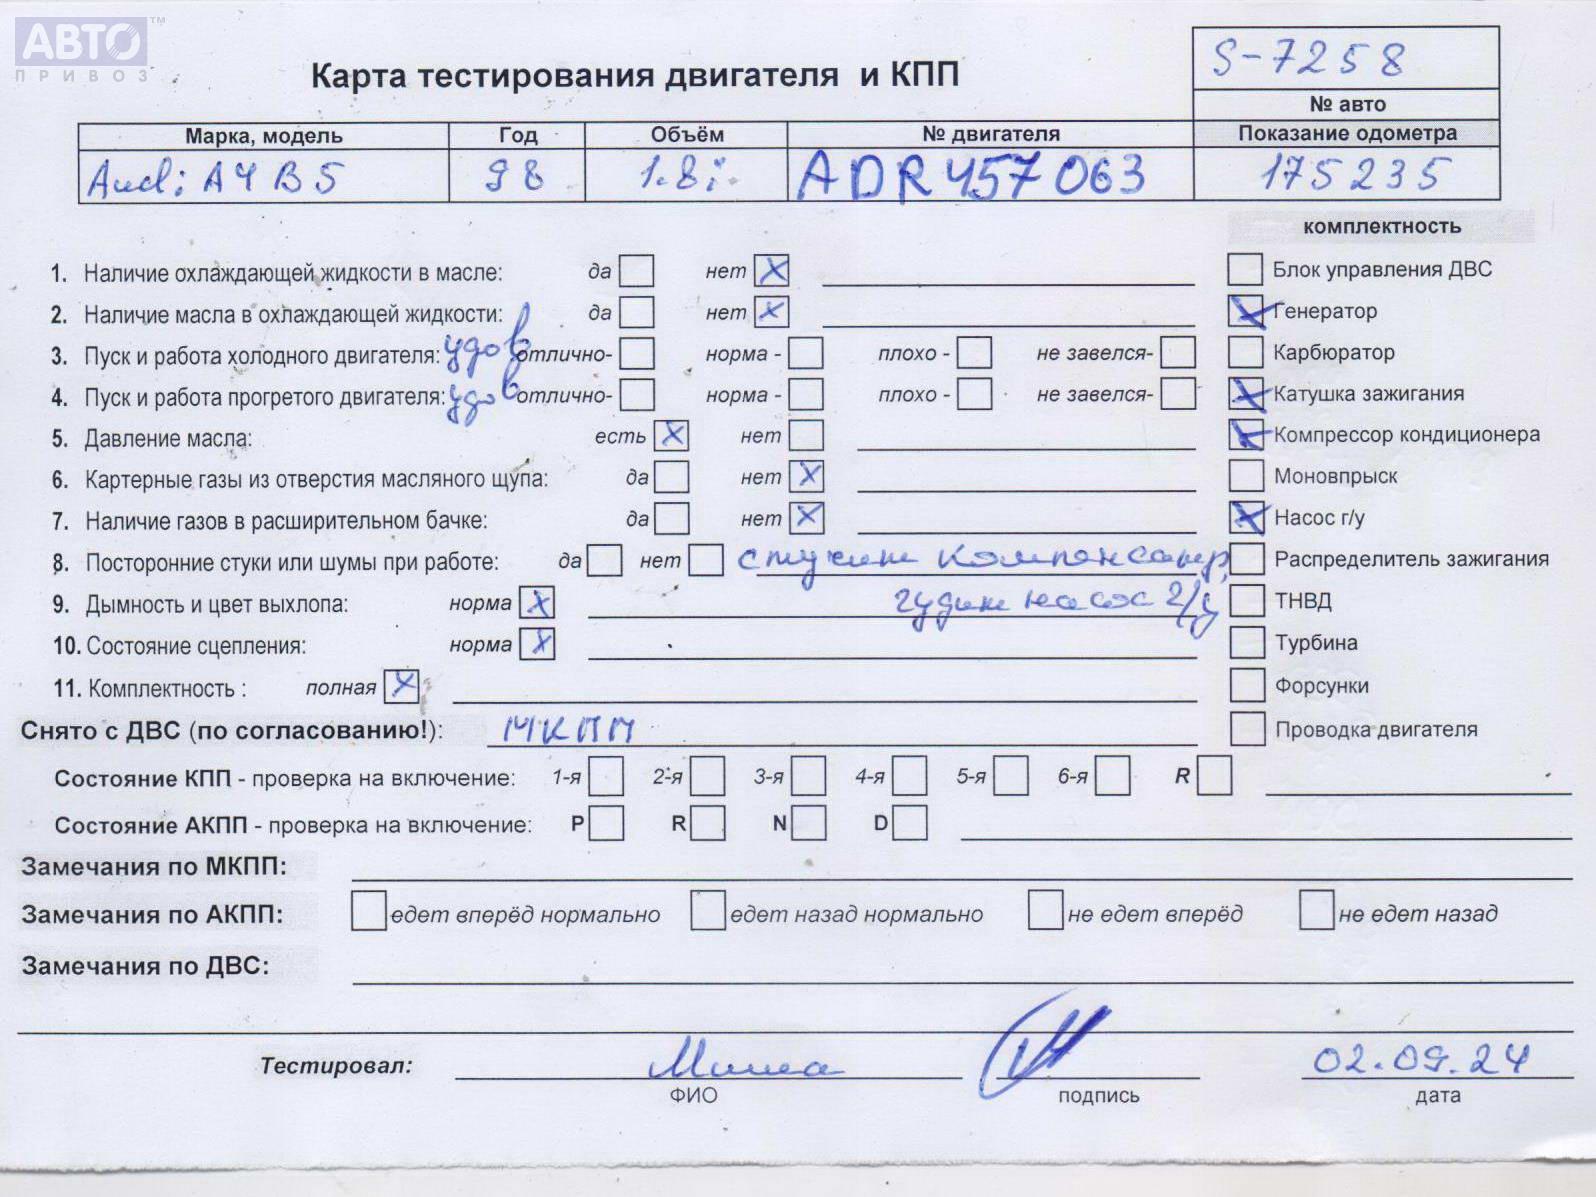 АВТО ™
ПРИВОЗ
Карта тестирования двигателя и КПП
S-7258
№ авто
Марка, модель Год Объём № двигателя Показание одометра
Audi A4 B5 98 1.8i ADR 457063 175235
комплектность
1. Наличие охлаждающей жидкости в масле: да нет X Блок управления ДВС
2. Наличие масла в охлаждающей жидкости: да нет X X Генератор
3. Пуск и работа холодного двигателя: удов отлично- норма - плохо - не завелся- Карбюратор
4. Пуск и работа прогретого двигателя: удов отлично- норма - плохо - не завелся- X Катушка зажигания
5. Давление масла: есть X нет X Компрессор кондиционера
6. Картерные газы из отверстия масляного щупа: да нет X Моновпрыск
7. Наличие газов в расширительном бачке: да нет X X Насос г/у
8. Посторонние стуки или шумы при работе: да нет стучит компенсатр, Распределитель зажигания
9. Дымность и цвет выхлопа: норма X гудит насос г/у ТНВД
10. Состояние сцепления: норма X Турбина
11. Комплектность : полная X Форсунки
Снято с ДВС (по согласованию!): МКПП Проводка двигателя
Состояние КПП - проверка на включение: 1-я 2-я 3-я 4-я 5-я 6-я R
Состояние АКПП - проверка на включение: P R N D
Замечания по МКПП:
Замечания по АКПП: едет вперёд нормально едет назад нормально не едет вперёд не едет назад
Замечания по ДВС:
Тестировал: Миша 02.09.24
ФИО подпись дата